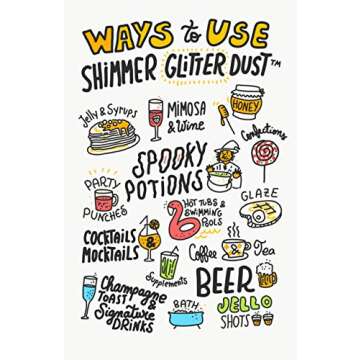 WAYS to USE
SHIMMER GLITTER DUST™
Jelly & Syrups
MIMOSA
& Wine
HONEY
Confections
SPOOKY
POTIONS
PARTY
PUNCHES
GLAZE
HOT TUBS &
SWIMMING
POOLS
COCKTAILS &
MOCKTAILS
Coffee & Tea
Supplements
BEER
Champagne
TOAST &
Signature
DRINKS
BATH
JELLO
SHOTS